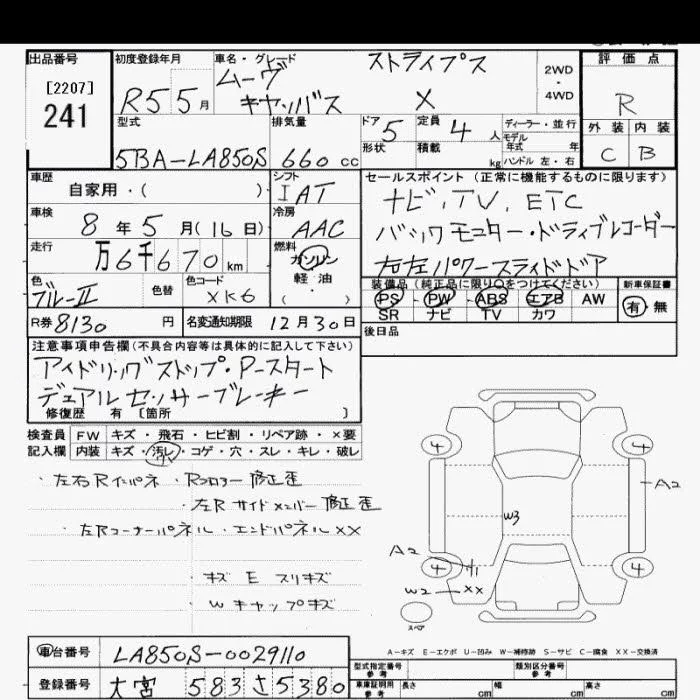 出品番号
[2207]
241
初度登録年月
R5 5月
車名・グレード
ムーヴ ストライプス
キャンバス X
2WD
・
4WD
評価点
R
外装 内装
C B
型式
5BA-LA850S
排気量
660 cc
ドア 5
形状
定員 4 人
積載 kg
ディーラー・並行
モデル
年式 年
ハンドル 左・右
車歴
自家用・( )
シフト
IAT
車検
8年5月(16日)
冷房
AAC
走行
万6千670km
燃料
ガソリン
軽油
( )
色
ブルーⅡ
色替
色コード
XK6
R券 8130 円
名変通知期限 12月30日
セールスポイント(正常に機能するものに限ります)
ナビ、TV、ETC
バックモニター・ドライブレコーダー
右左パワースライドドア
装備品(純正品に限り○をつけてください)
PS・PW・ABS・エアB・AW
SR ナビ TV カワ
新車保証書
有・無
後日品
注意事項申告欄(不具合内容等は具体的に記入して下さい)
アイドリングストップ・Pースタート
デュアルセンサーブレーキー
修復歴 有 [箇所 ]
検査員 FW キズ・飛石・ヒビ割・リペア跡・×要
記入欄 内装 キズ・汚レ・コゲ・穴・スレ・キレ・破レ
・左右Rインパネ・Rフロアー修正歪
・左Rサイドメンバー修正歪
・左Rコーナーパネル・エンドパネルXX
・キズ E スリキズ
・Wキャップキズ
4 4
A2
W3
A2
4 4
W2 XX
スペア
A-キズ E-エクボ U-凹み W-補修跡 S-サビ C-腐食 XX-交換済
車台番号 LA850S-0029110
登録番号 大宮 583 さ 5380
型式指定番号
参考
類別区分番号
参考
車庫証明用
参考
長さ cm 幅 cm 高さ cm